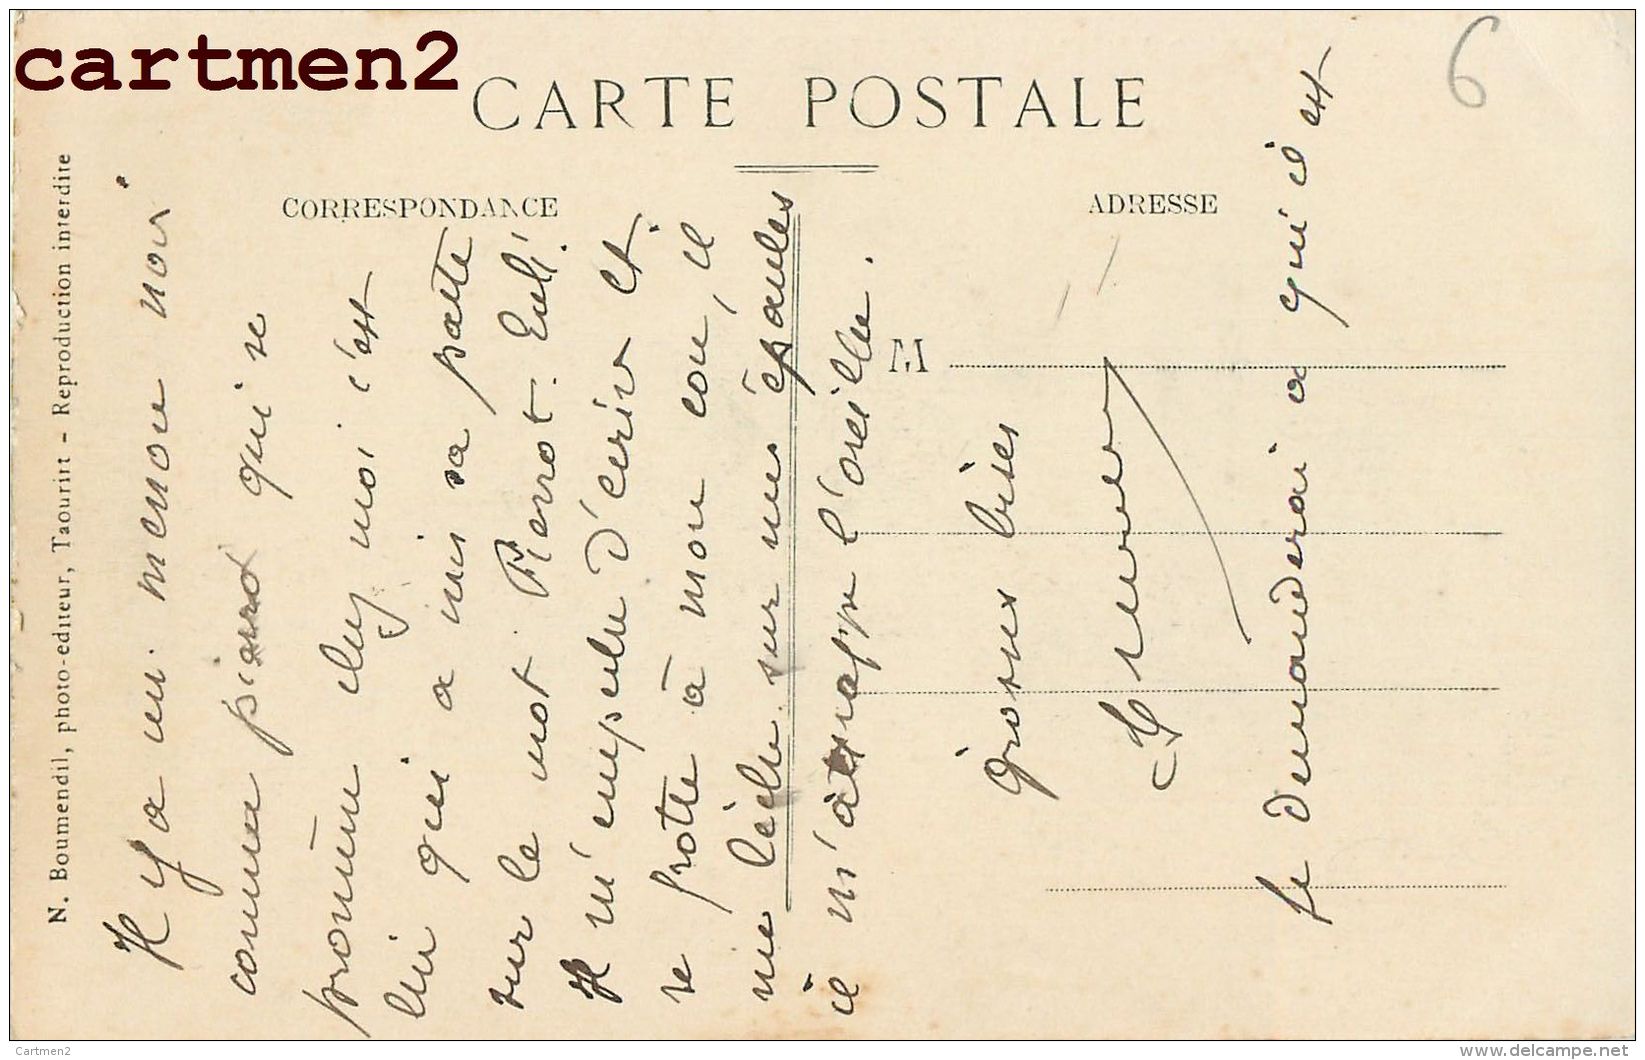 cartmen2
6
CARTE POSTALE
CORRESPONDANCE
ADRESSE
M
N. Boumendil, photo-editeur, Taourirt - Reproduction interdite
Il y a un menou noir
comme qui se
promène chez moi c'est
lui qui a mis sa patte
sur le mot Pierrot.
Il m'empêche d'écrire et
se frotte à mon cou, il
me lèche sur mes épaules
il m'attrappe l'oreille.
Grosses bises
je demanderai a qui il est
Cartmen2
www.delcampe.net